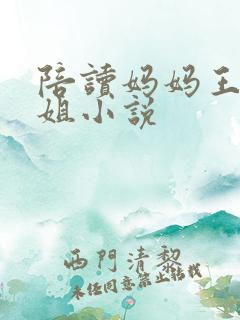 陪讀妈妈王
姐小说
西門清黎
未经同意禁止转载